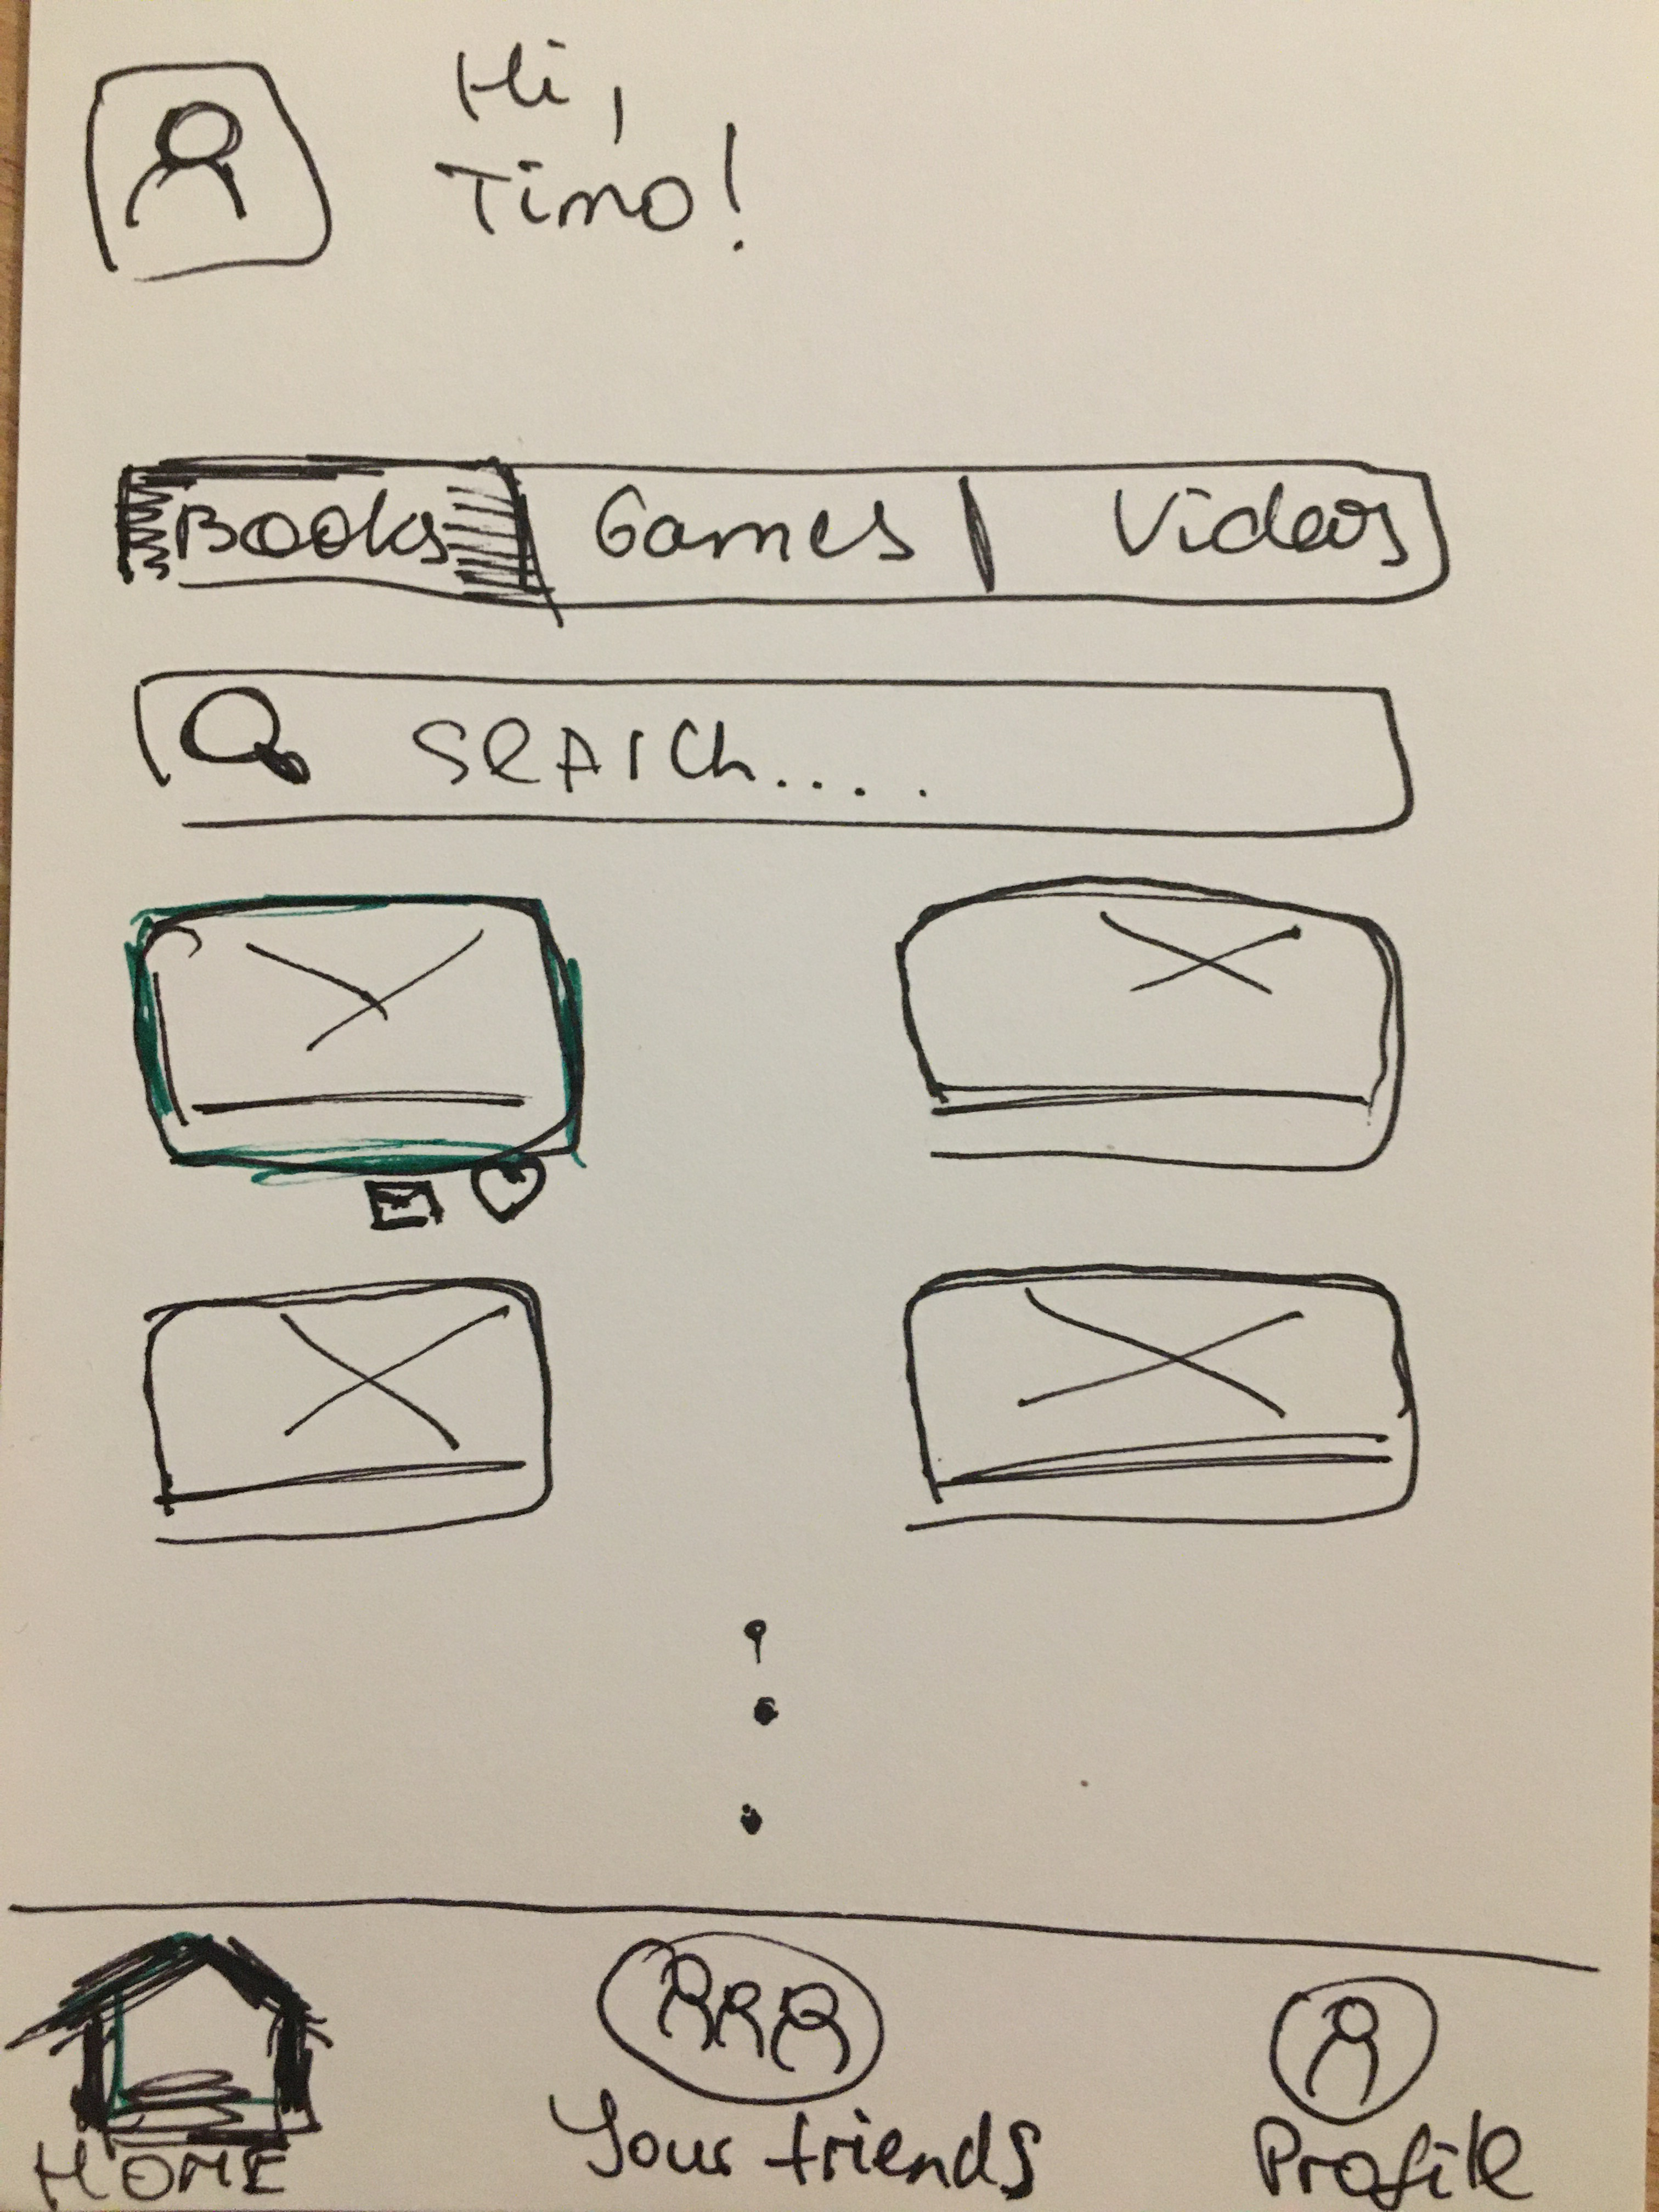 Hi,
Timo!
Books Games Videos
SeARCh.....
HOME Your friends Profile